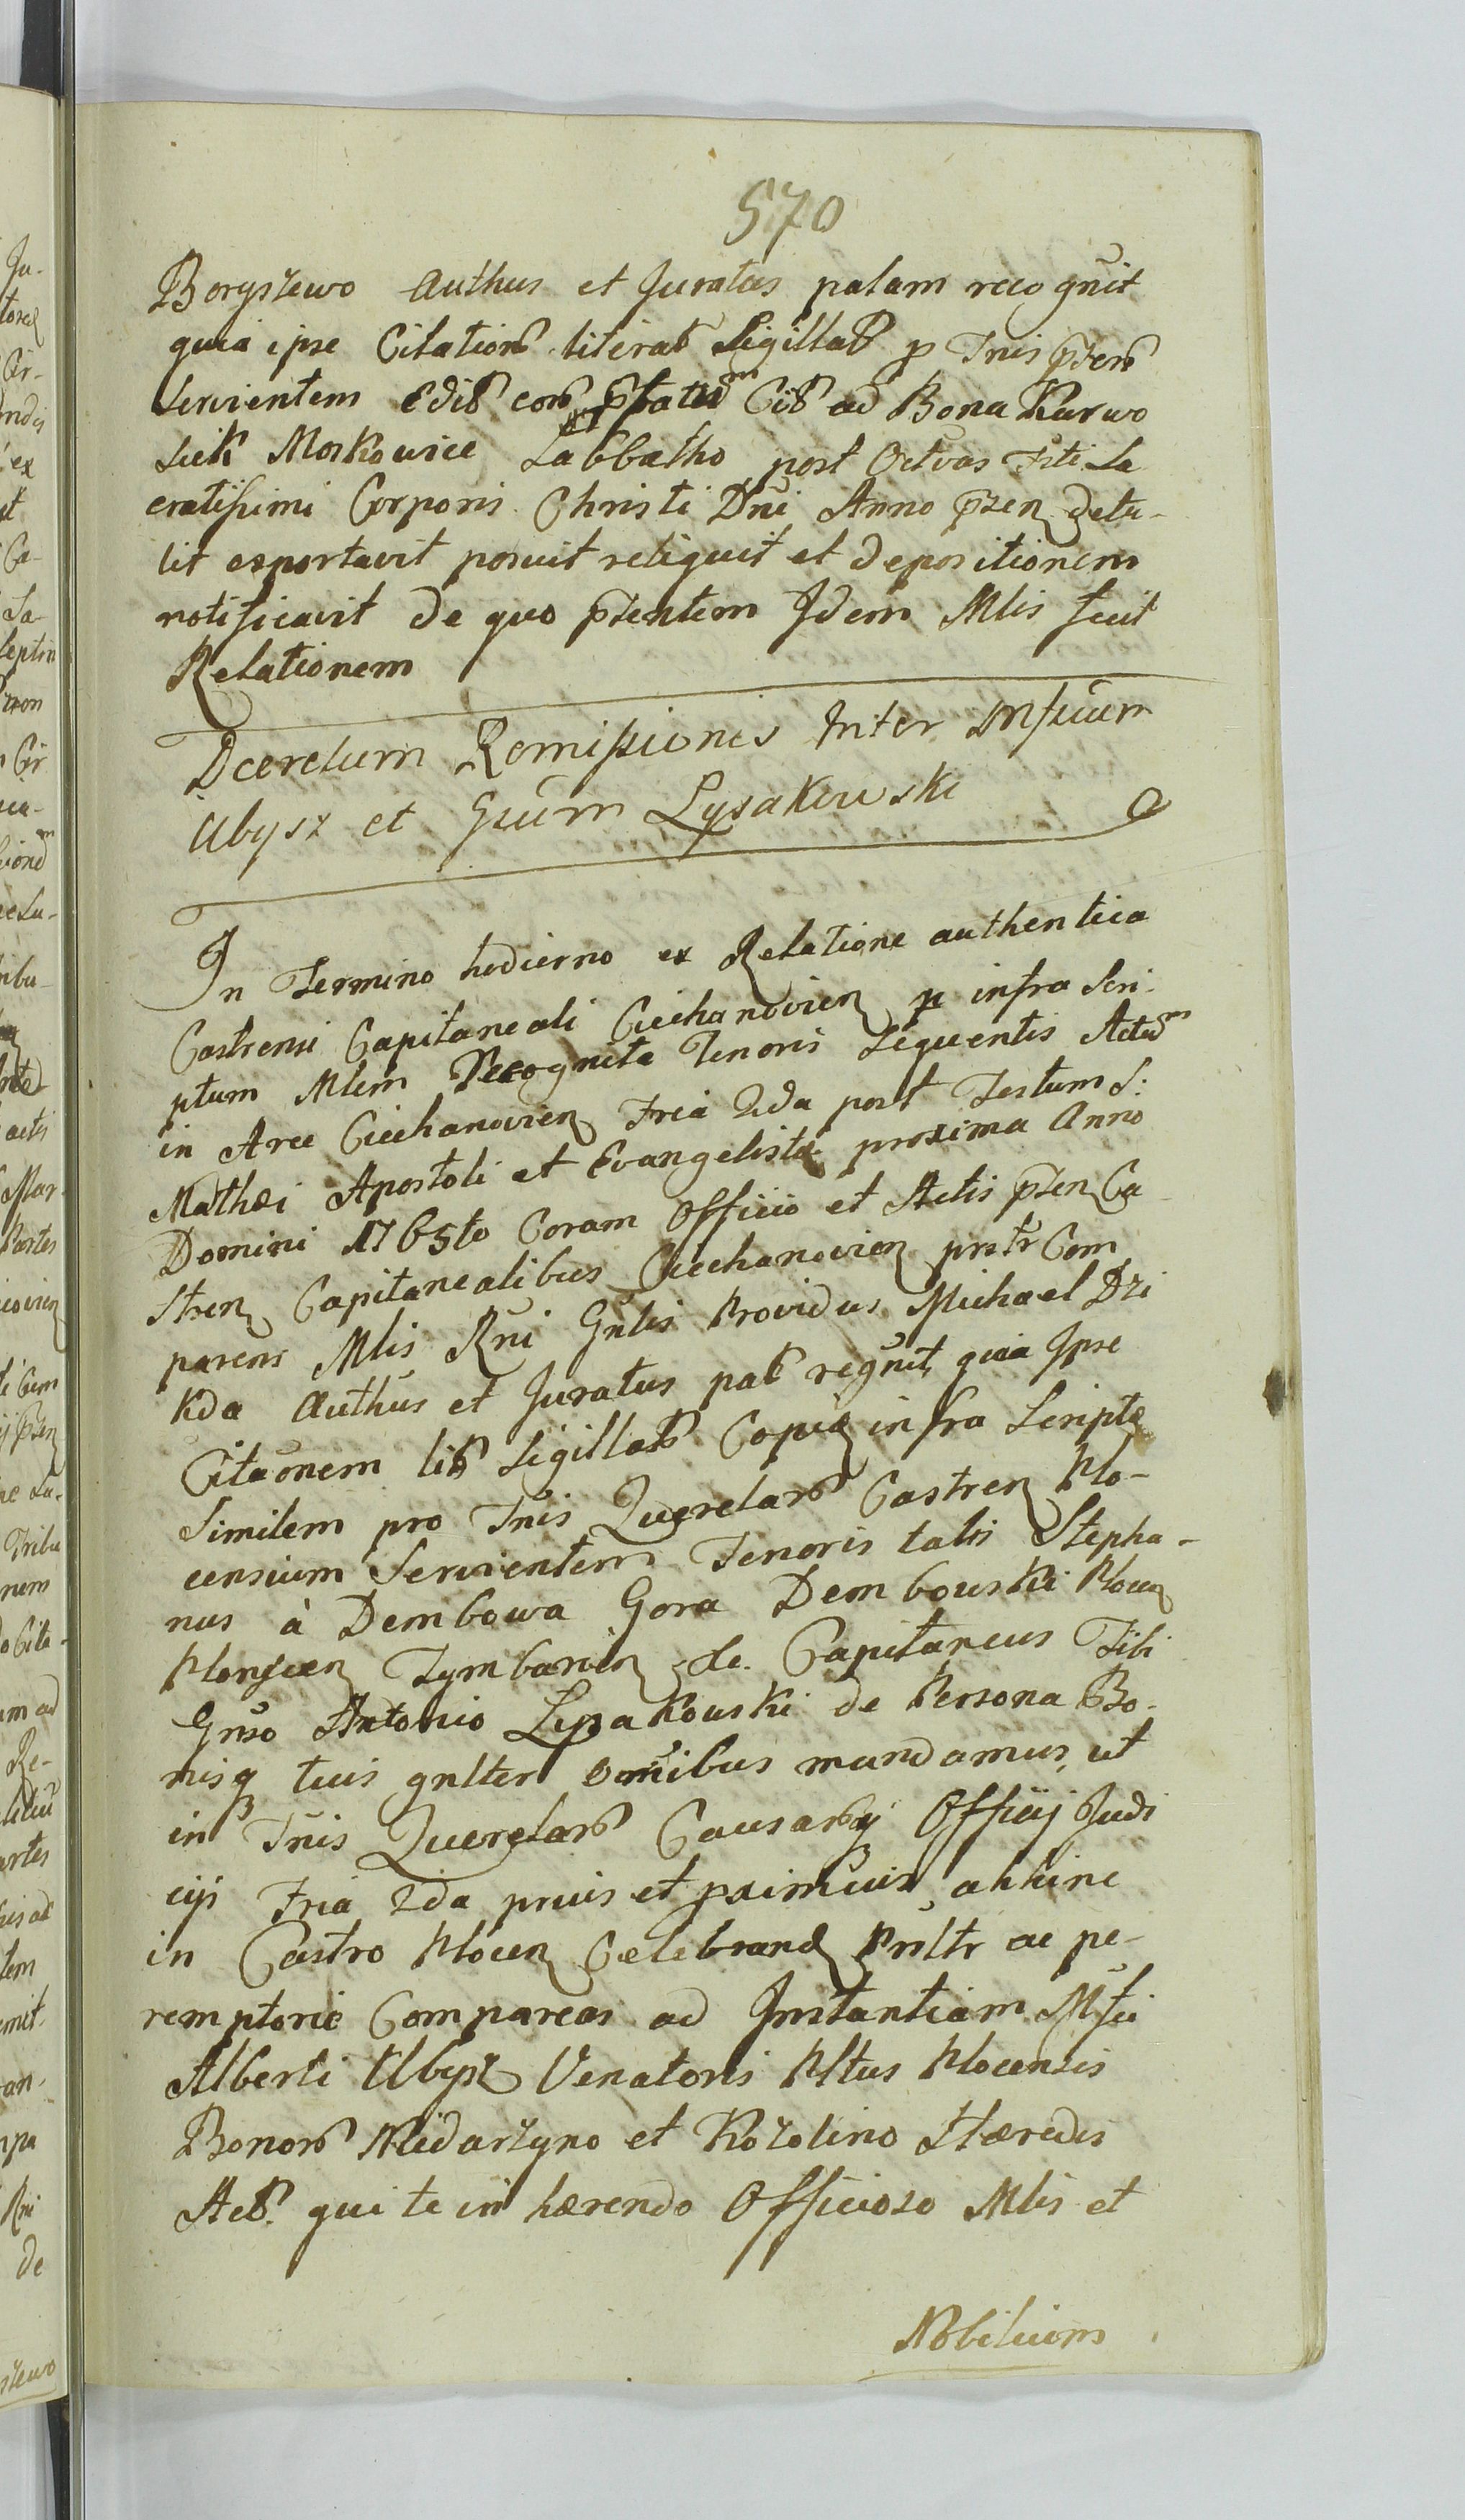 570
Boryszewo Authus et Juratus palam recognit
quia ipse Citation literal Sigillat p Tnis pzen
Servientem Edit com pstatum Cit ad Bona Karwo
siek Morkowice Sabbatho post Octvas Fsti Sa
cratissimi Corporis Christi Dni Anno pzen detu-
lit exportavit posuit reliquit et depositionem
notificavit de quo pzentem Idem Mlis fecit
Relationem
Decretum Remissionis Inter Mfcum
Ubysz et Gsum Lysakowski
In Termino hodierno ex Relatione authentica
Castrensi Capitaneali Ciechanovien p infra Scri-
ptum Mlem Recognita Tenoris Sequentis Actum
in Arce Ciechanovien Fria 2da post Festum S:
Mathæi Apostoli et Evangelistæ proxima Anno
Domini 1765to Coram Officio et Actis pzen Ca
stren Capitanealibus Ciechanovien prstr Com
parens Mlis Rni Gnlis Providus Michael Dzi
kda Authus et Juratus pal regnit, quia Ipse
Citaonem lit Sigillat Copiæ infra Scriptæ
Similem pro Tnis Querelar Castren Plo-
censium Servientem Tenoris talis Stepha-
nus à Dembowa Gora Dembowski Plocen
Plonscen Tymbarcen &c. Capitaneus Tibi
Gnso Antonio Lysakowski de Persona Bo-
nisq tuis gnlter omnibus mandamus, ut
in Tnis Querelar Causarq Officij Judi
cijs Fria 2da prius et pximius abhinc
in Castro Plocen Celebrand Prsltr ac pe-
remptorie Compareas ad Instantiam Mfci
Alberti Ubysz Venatoris Pltus Plocensis
Bonor Niedarzyno et Kozolino Hæredis
Act. qui te in hærendo Officioso Mlis et
Nobilium